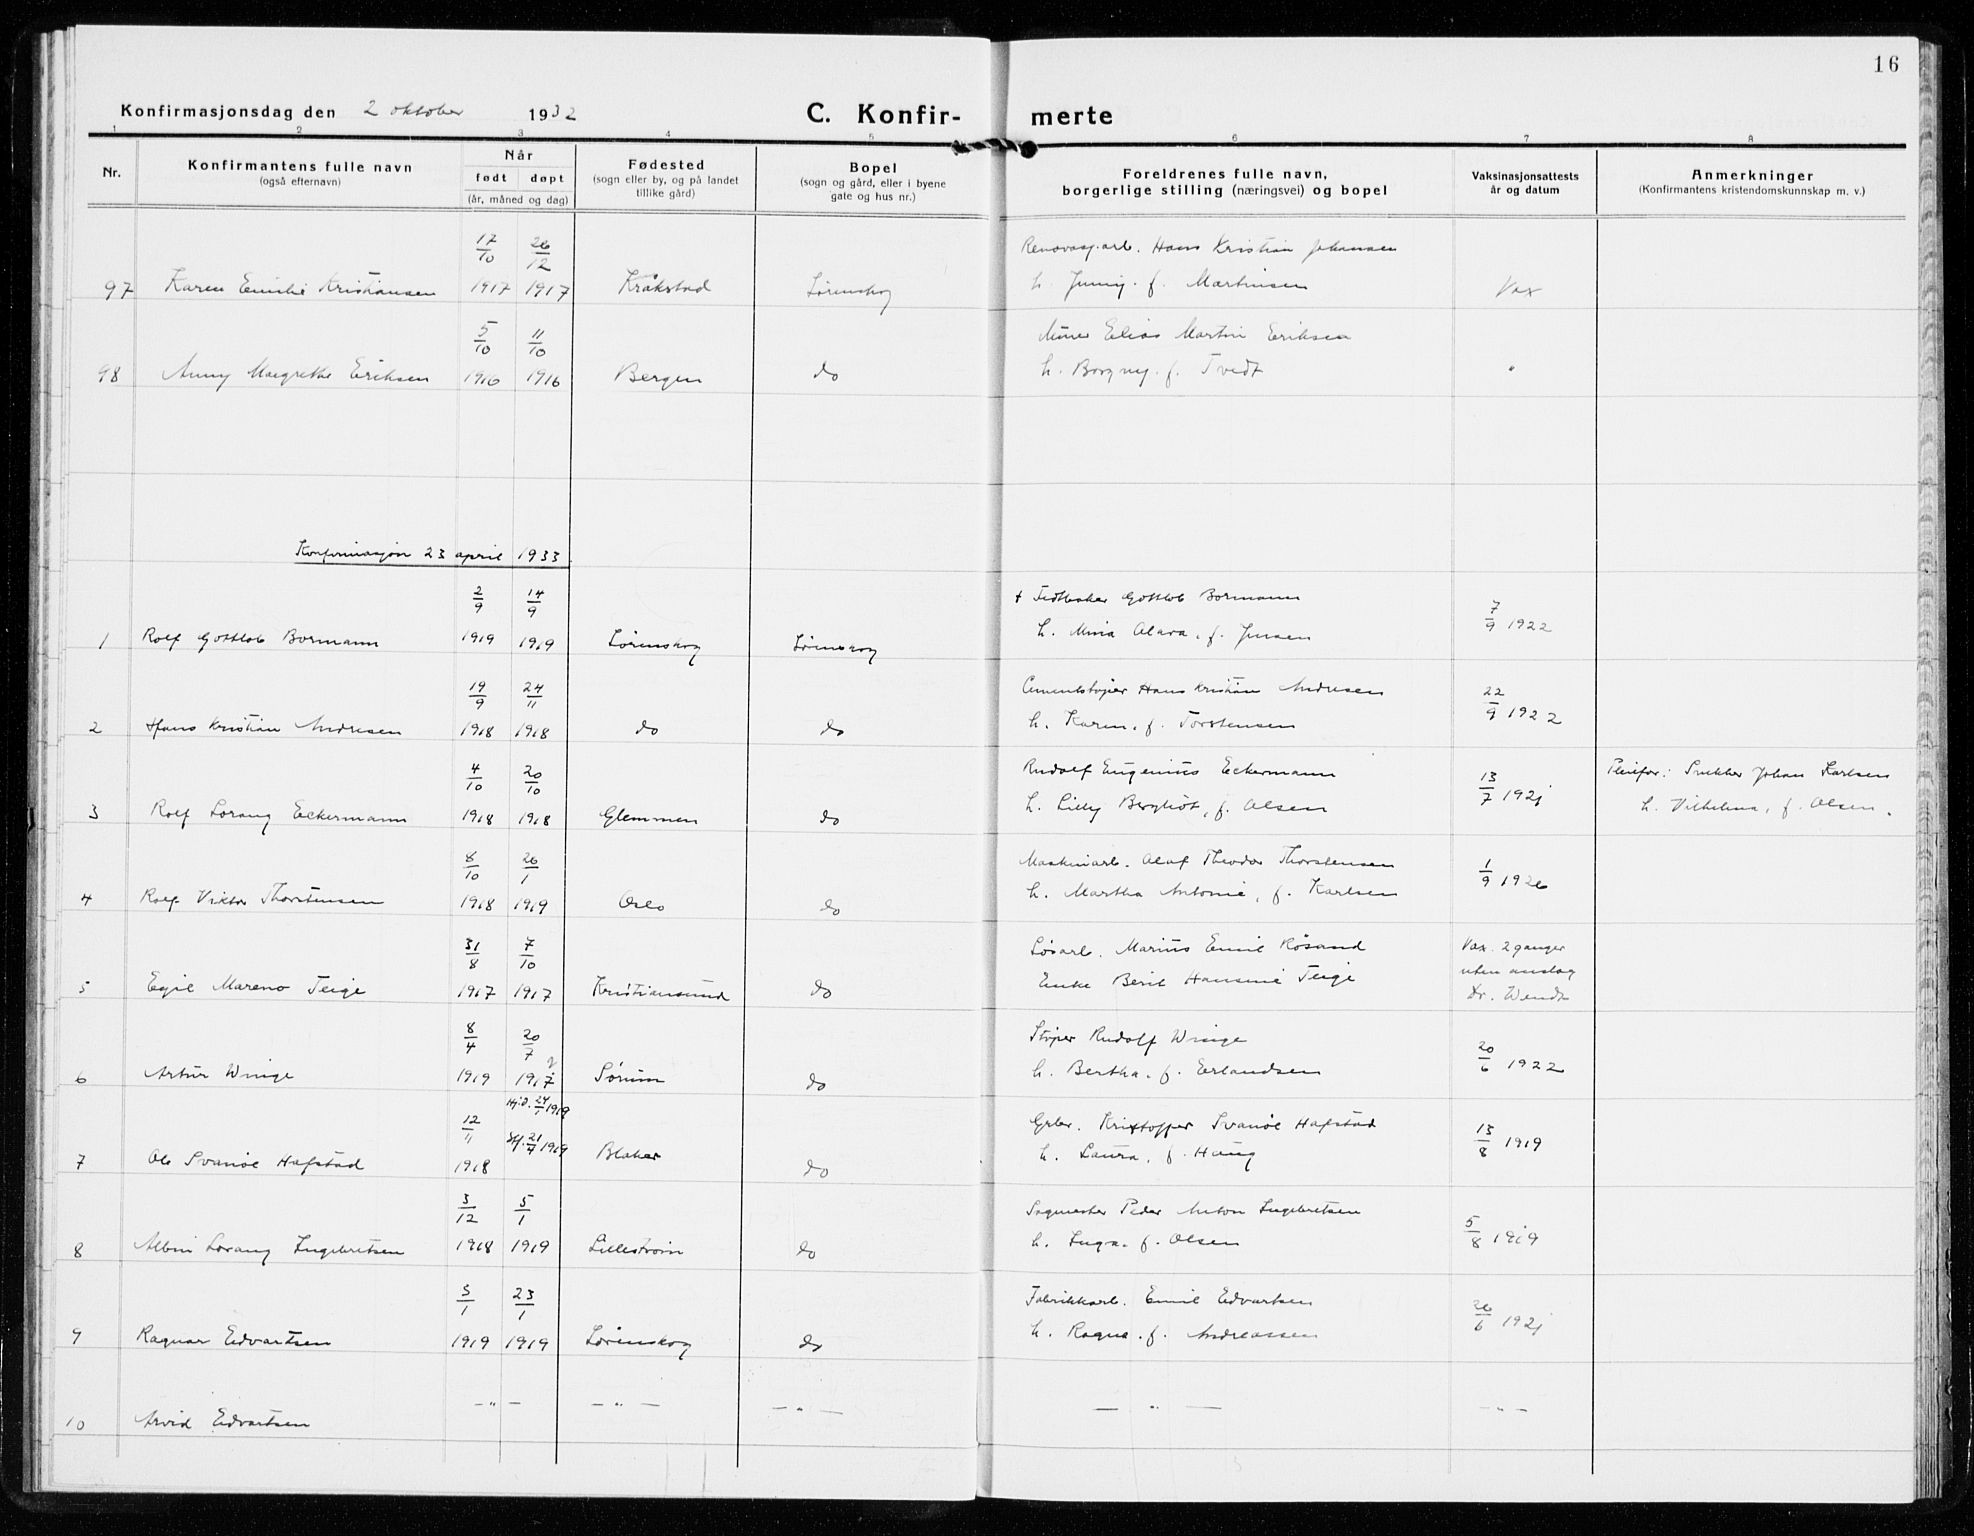 16
Konfirmasjonsdag den 2 oktober 1932
C. Konfir-
merte
1 2 3 4 5 6 7 8
Nr.
Konfirmantens fulle navn
(også efternavn)
Når
født døpt
(år, måned og dag)
Fødested
(sogn eller by, og på landet
tillike gård)
Bopel
(sogn og gård, eller i byene
gate og hus nr.)
Foreldrenes fulle navn,
borgerlige stilling (næringsvei) og bopel
Vaksinasjonsattests
år og datum
Anmerkninger
(Konfirmantens kristendomskunnskap m. v.)
17/10 26/12 Renovasj.arb. Hans Kristian Johansen
97 Karen Emilie Kristiansen 1917 1917 Kråkstad Lørenskog h. Jenny. f. Martinsen Vax
5/10 11/10 Murer Elias Martin Eriksen
98 Anny Margrethe Eriksen 1916 1916 Bergen do h. Borgny. f. Tvedt "
Konfirmasjon 23 april 1933
2/9 14/9 + Gottlob Bormann 7/9 1922
1 Rolf Gottlob Bormann 1919 1919 Lørenskog Lørenskog h. Mina Alava, f. Jensen
19/9 24/11 Cementstøper Hans Kristian Andresen 22/9 1922
2 Hans Kristian Andresen 1918 1918 do do h. Karen, f. Torstensen
4/10 20/10 Rudolf Eugenius Eckermann 13/7 1921 Pleiefor: Snekker Johan Karlsen
3 Rolf Lorang Eckermann 1918 1918 Glemmen do h. Lilly Bergliot, f. Olsen h. Vilhelma, f. Olsen.
8/10 26/1 Maskinarb. Olaf Theodor Thorstensen 1/9 1926
4 Rolf Viktor Thorstensen 1918 1919 Oslo do h. Martha Antonie, f. Karlsen
31/8 7/10 Løsarb. Marius Emil Røsand Vax. 2 ganger
5 Egil Mareno Teige 1917 1917 Kristiansund do Enke Berit Hansine Teige uten anslag
Dr. Wendt
8/4 20/7 Støper Rudolf Winge 20/6 1922
6 Artur Winge 1919 1917 ? Sørum do h. Bertha. f. Erlandsen
12/11 Hj.d. 24/1 1919 Grbr. Kristoffer Svanøe Hafstad 13/8 1919
Stf. 21/4 1919
7 Ole Svanøe Hafstad 1918 Blaker do h. Laura, f. Haug
3/12 5/1 Sagmester Peder Anton Ingebretsen 5/8 1919
8 Albin Lorang Ingebretsen 1918 1919 Lillestrøm do h. Inga. f. Olsen
3/1 23/1 Fabrikkarb. Emil Edvartsen 26/6 1921
9 Ragnar Edvartsen 1919 1919 Lørenskog do h. Ragna. f. Andreassen
10 Arvid Edvartsen — " — — " — — " — — " — — " —